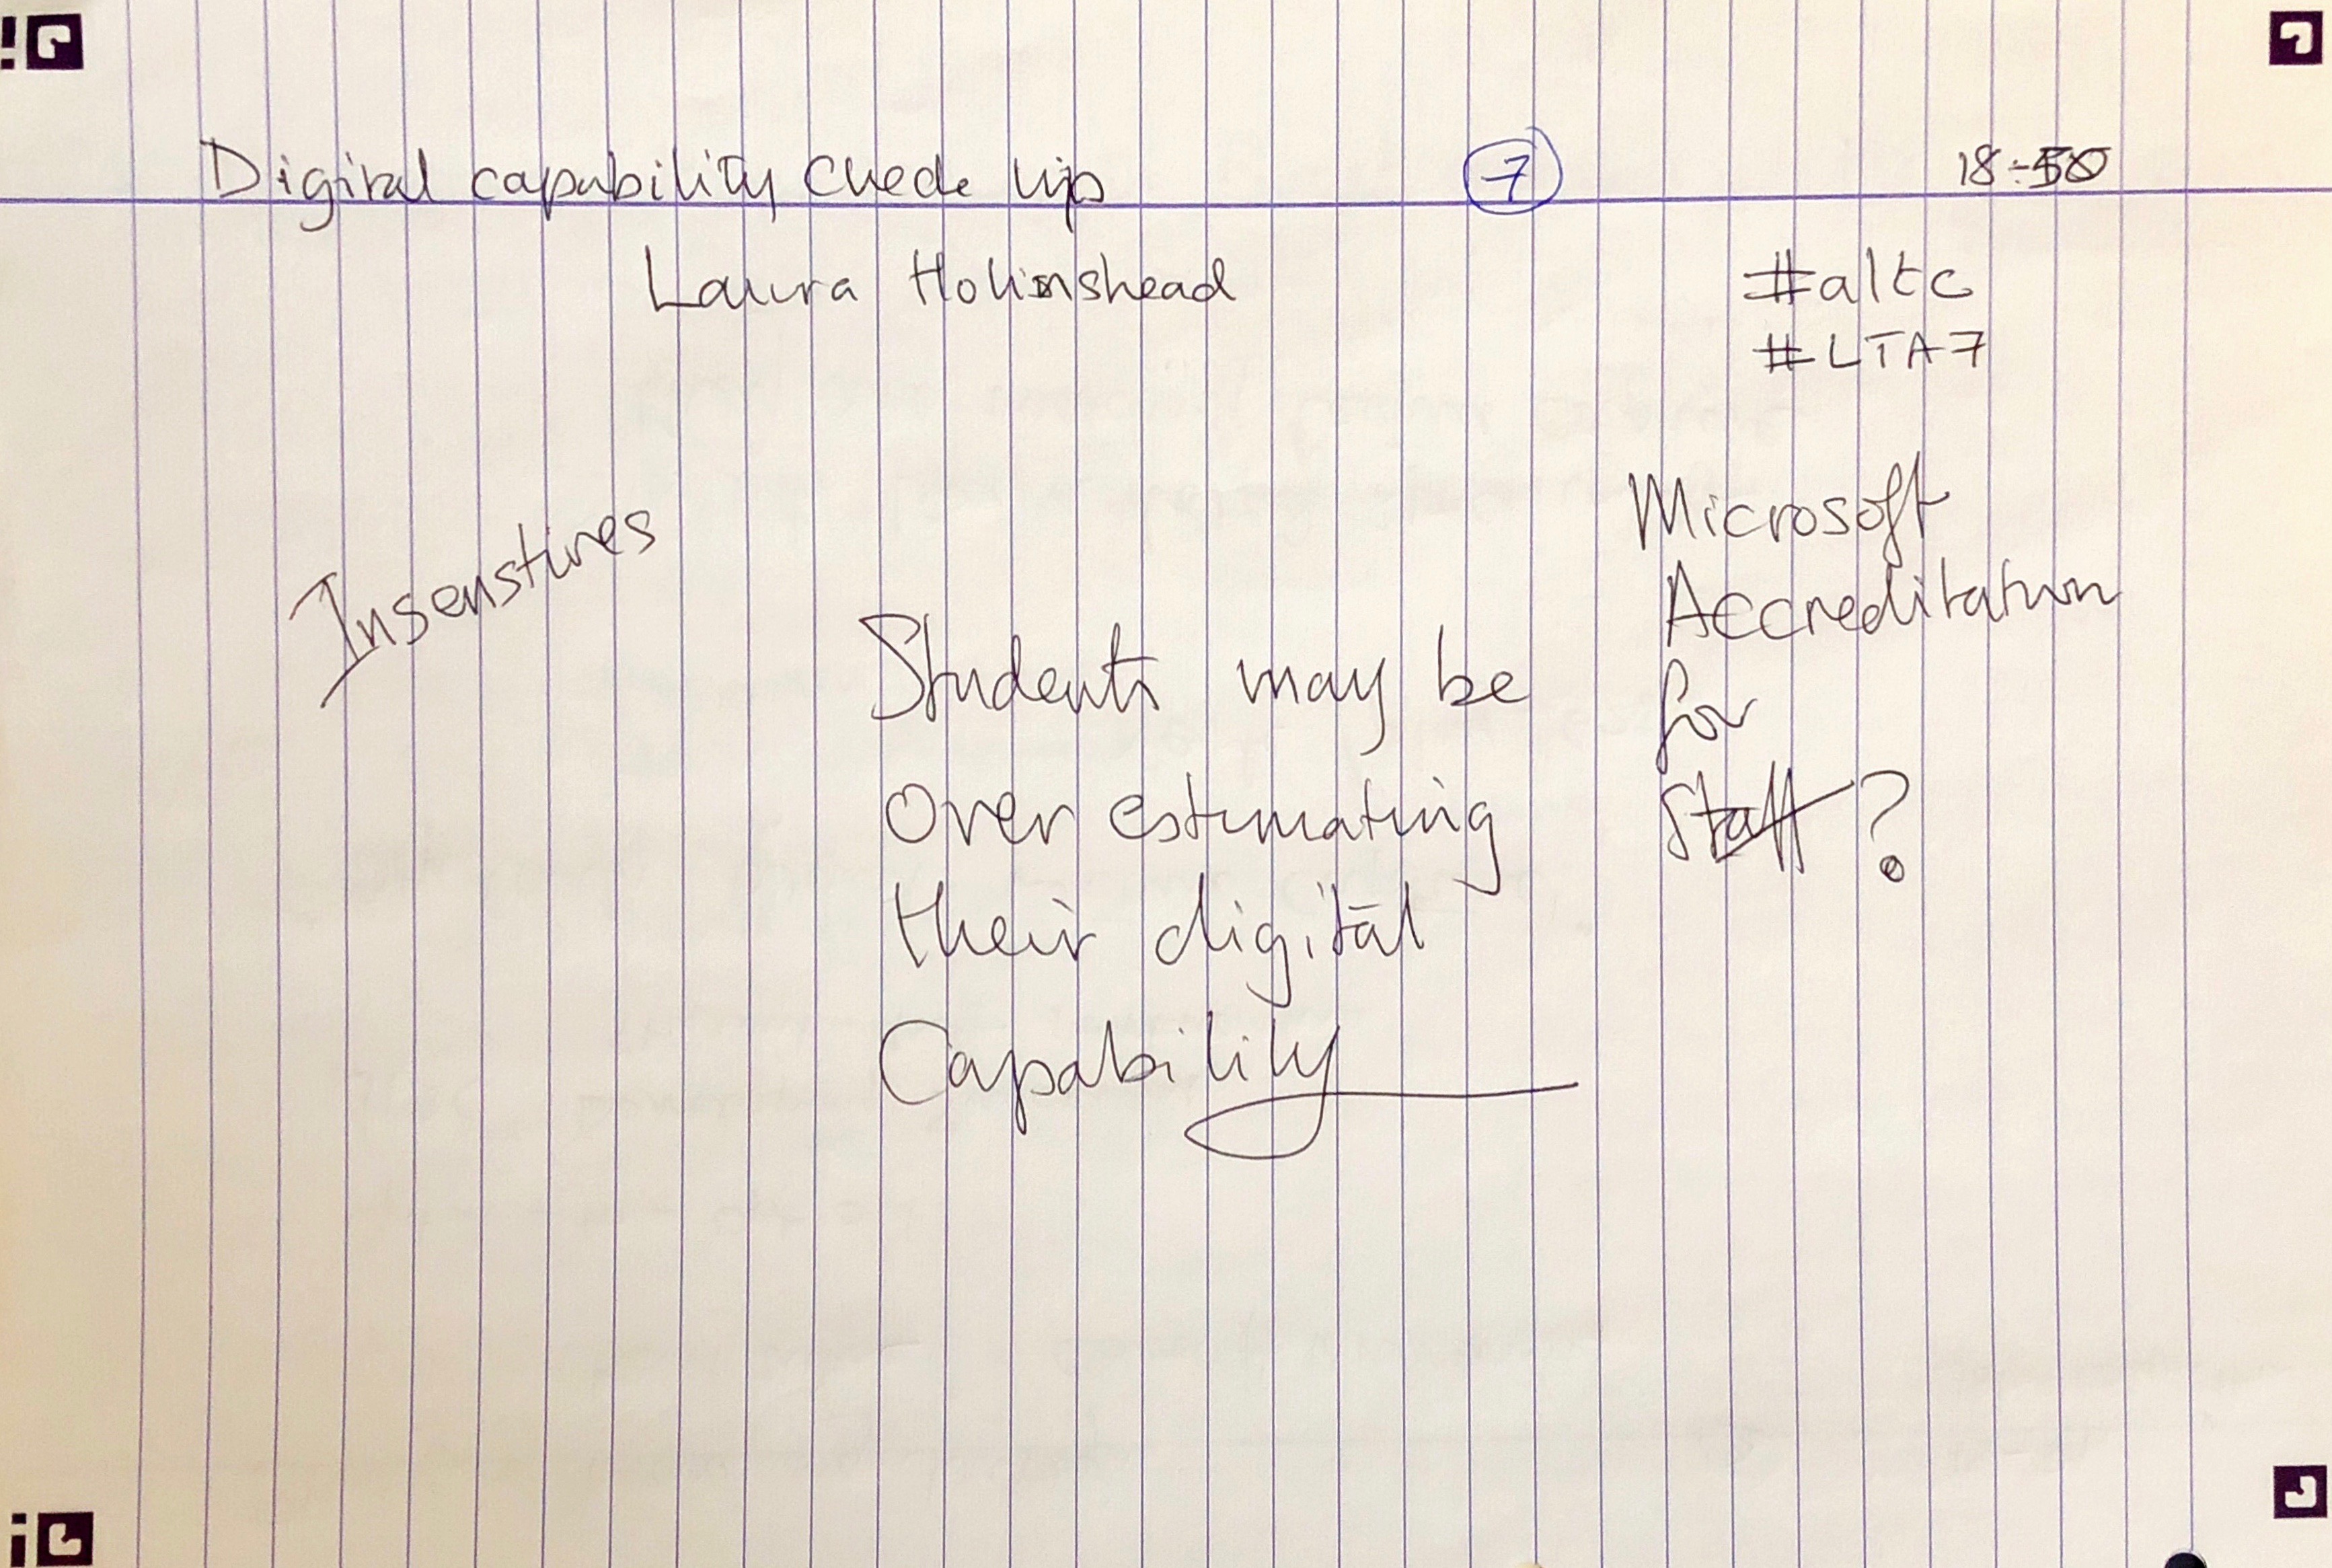 Digital capability check ups
7
18:50
Laura Hollinshead
#altc
#LTA7
Insenstives
Students may be
over estimating
their digital
Capability
Microsoft
Accreditation
for
Staff ?